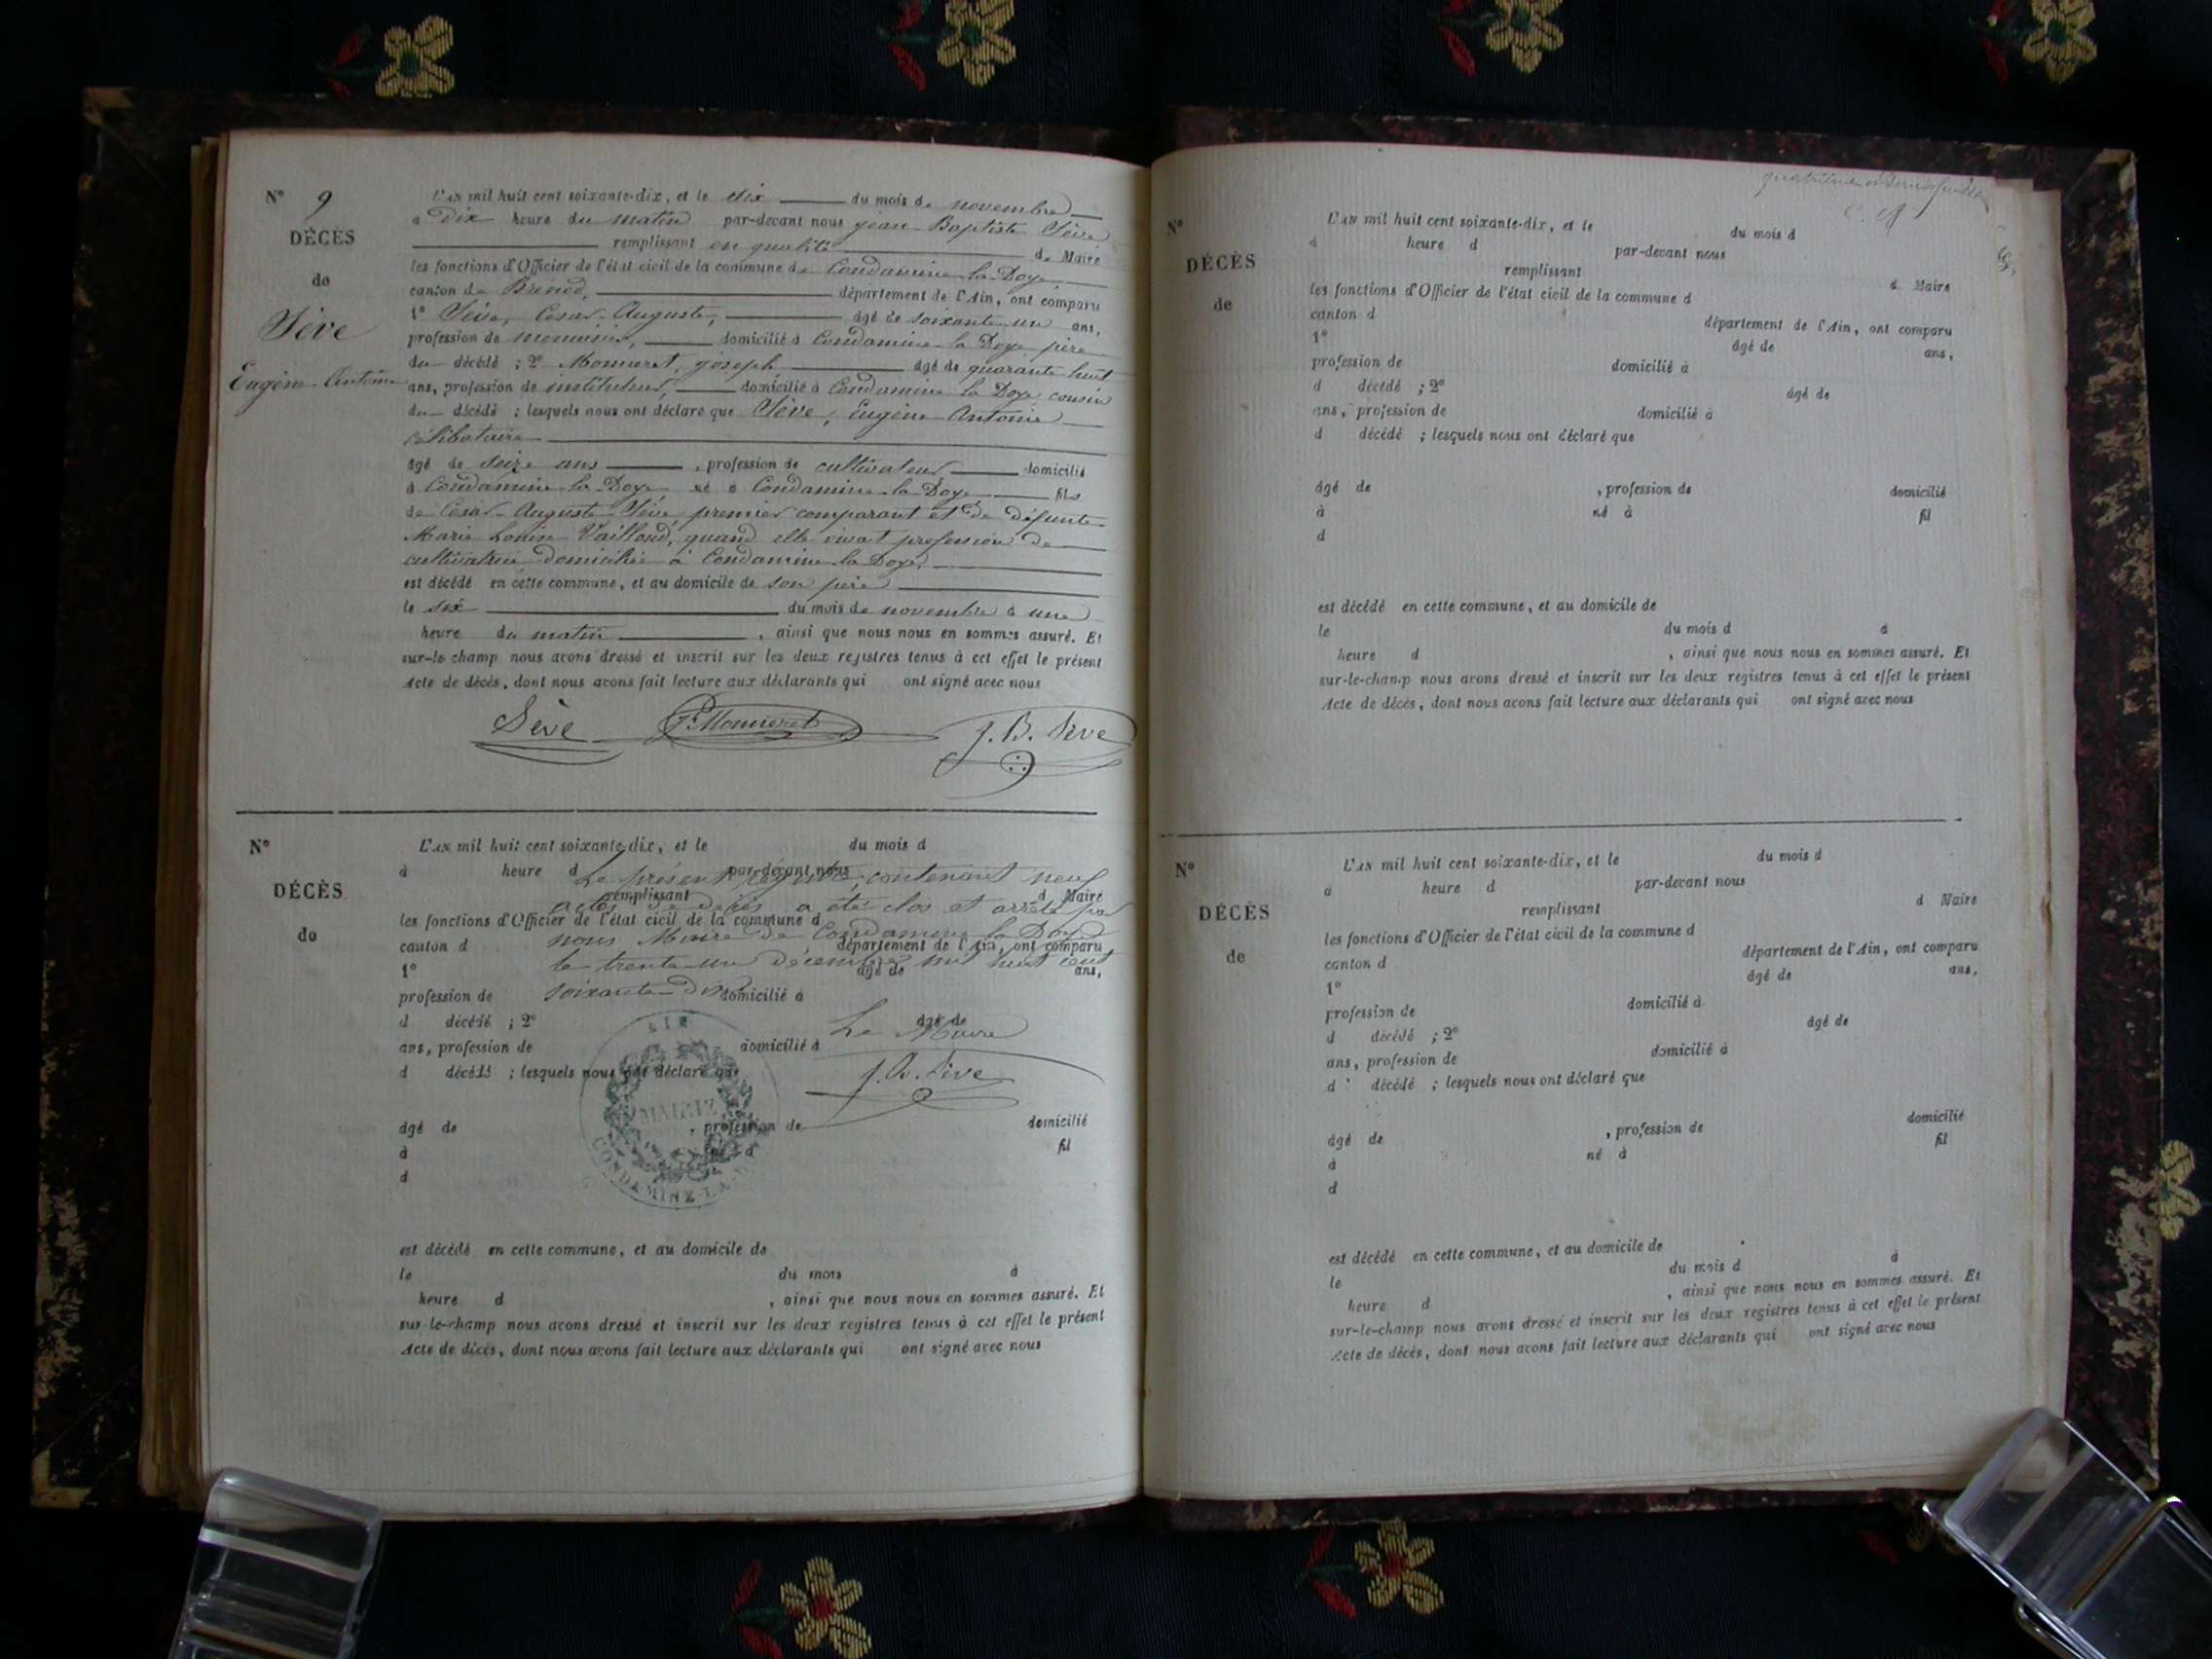 N° 9
DÉCÈS
de
Sève
Eugène Antoine
L'AN mil huit cent soixante-dix, et le six du mois de novembre
à dix heure du matin par-devant nous jean-Baptiste Sève
remplissant en qualité de Maire
les fonctions d'Officier de l'état civil de la commune de Condamine-la-Doye
canton de Brenod, département de l'Ain, ont comparu
1° Sève, César-Auguste, âgé de soixante-un ans,
profession de menuisier, domicilié à Condamine-la-Doye père
du décédé ; 2° Monneret, joseph âgé de quarante huit
ans, profession de instituteur, domicilié à Condamine la Doye cousin
du décédé ; lesquels nous ont déclaré que Sève, Eugène Antoine
célibataire
âgé de seize ans, profession de cultivateur domicilié
à Condamine la-Doye né à Condamine-la-Doye fils
de César-Auguste Sève, premier comparant et de défunte
Marie Vailloud, quand elle vivait profession de
cultivatrice domiciliée à Condamine-la-Doye,
est décédé en cette commune, et au domicile de son père
le six du mois de novembre à une
heure du matin, ainsi que nous nous en sommes assuré. Et
sur-le-champ nous avons dressé et inscrit sur les deux registres tenus à cet effet le présent
Acte de décès, dont nous avons fait lecture aux déclarants qui ont signé avec nous
Sève Monneret J. B. Sève
N°
DÉCÈS
de
L'AN mil huit cent soixante-dix, et le du mois d
à heure d par-devant nous
Le présent registre, contenant neuf
remplissant d Maire
actes de décès a été clos et arrêté par
les fonctions d'Officier de l'état civil de la commune d
nous Maire de Condamine la Doye
canton d département de l'Ain, ont comparu
le trente-un décembre mil huit cent
1° âgé de ans,
soixante-dix
profession de domicilié à
d décédé ; 2° âgé de
Le Maire
ans, profession de domicilié à
d décédé ; lesquels nous ont déclaré que
J. B. Sève
AIN
MAIRIE
CONDAMINE-LA-DOYE
âgé de , profession de domicilié
à né à fil
d
est décédé en cette commune, et au domicile de
le du mois à
heure d , ainsi que nous nous en sommes assuré. Et
sur-le-champ nous avons dressé et inscrit sur les deux registres tenus à cet effet le présent
Acte de décès, dont nous avons fait lecture aux déclarants qui ont signé avec nous
quatrième et dernier feuillet
N°
DÉCÈS
de
L'AN mil huit cent soixante-dix, et le du mois d
à heure d par-devant nous
remplissant d Maire
les fonctions d'Officier de l'état civil de la commune d
canton d département de l'Ain, ont comparu
1° âgé de ans,
profession de domicilié à
d décédé ; 2° âgé de
ans, profession de domicilié à
d décédé ; lesquels nous ont déclaré que
âgé de , profession de domicilié
à né à fil
d
est décédé en cette commune, et au domicile de
le du mois d à
heure d , ainsi que nous nous en sommes assuré. Et
sur-le-champ nous avons dressé et inscrit sur les deux registres tenus à cet effet le présent
Acte de décès, dont nous avons fait lecture aux déclarants qui ont signé avec nous
N°
DÉCÈS
de
L'AN mil huit cent soixante-dix, et le du mois d
à heure d par-devant nous
remplissant d Maire
les fonctions d'Officier de l'état civil de la commune d
canton d département de l'Ain, ont comparu
1° âgé de ans,
profession de domicilié à
d décédé ; 2° âgé de
ans, profession de domicilié à
d décédé ; lesquels nous ont déclaré que
âgé de , profession de domicilié
à né à fil
d
est décédé en cette commune, et au domicile de
le du mois d à
heure d , ainsi que nous nous en sommes assuré. Et
sur-le-champ nous avons dressé et inscrit sur les deux registres tenus à cet effet le présent
Acte de décès, dont nous avons fait lecture aux déclarants qui ont signé avec nous